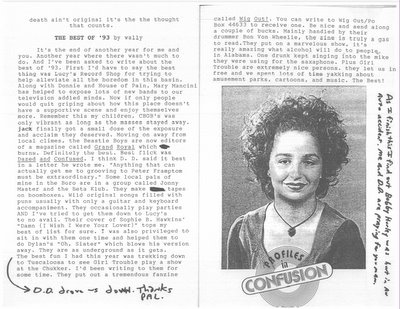 death ain't original it's the the thought
that counts.
THE BEST OF '93 by vally
It's the end of another year for me and
you. Another year where there wasn't much to
do. And I've been asked to write about the
best of '93. First I'd have to say the best
thing was Lucy's Record Shop for trying to
help alleviate all the boredom in this basin.
Along with Donnie and House of Pain, Mary Mancini
has helped to expose lots of new bands to our
television addled minds. Now if only people
would quit griping about how this place doesn't
have a supportive scene and enjoy themselves
more. Remember this my children. CBGB's was
only vibrant as long as the masses stayed away.
jack finally got a small dose of the exposure
and acclaim they deserved. Moving on away from
local climes. the Beastie Boys are now editors
of a magazine called Grand Royal which
burns. Definitely the best. Best flick was
Dazed and Confused. I think D. D. said it best
in a letter he wrote me. "Anything that can
actually get me to grooving to Peter Frampton
must be extraordinary." Some local pals of
mine in the Boro are in a group called Jonny
Master and the Beta Klub. They make tapes
on boomboxes. Wild original songs filled with
puns usually with only a guitar and keyboard
accompaniment. They occasionally play parties
AND I've tried to get them down to Lucy's
to no avail. Their cover of Screamin Jay Hawkins'
"Damn (I Wish I Were Your Lover)" tops my
best of list for sure. I was also privileged to
sit in with them one time and helped them to
do Dylan's "Oh, Sister" which blows his version
away. They are as underground as it gets.
The best fun I had this year was trekking down
to Tuscaloosa to see Girl Trouble play a show
at the Chukker. I'd been writing to them for
some time. They put out a tremendous fanzine
D.D. down thanks
PAL.
called Wig Out!. You can write to Wig Out/Po
Box 44633 to receive one. Be nice and send along
a couple of bucks. Mainly handled by their
drummer Bon Von Wheelie, the zine is truly a gas
to read. They put on a marvelous show. It's
really amazing what alcohol will do to people,
in Alabama. One drunk kept singing into the mike
they were using for the saxaphone. Plus Girl
Trouble are extremely nice persons. they let us in
free and we spent lots of time yakking about
amusement parks, cartoons, and music. The Best!
PROFILES in
CONFUSION